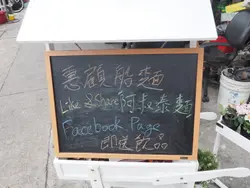 惠顧酷麵
Like & Share 阿叔泰麵
Facebook Page
即送飲品